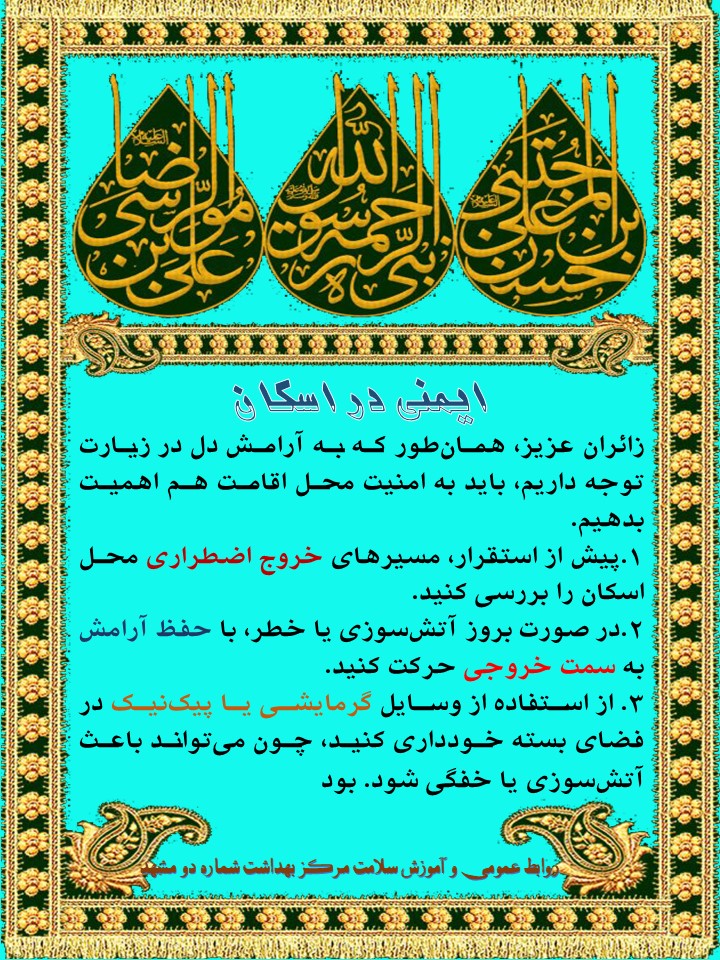 حسن بن علی المجتبی
رسول الله نبی الرحمه
علی بن موسی الرضا
ایمنی در اسکان
زائران عزیز، همان‌طور که به آرامش دل در زیارت
توجه داریم، باید به امنیت محل اقامت هم اهمیت
بدهیم.
۱.پیش از استقرار، مسیرهای خروج اضطراری محل
اسکان را بررسی کنید.
۲.در صورت بروز آتش‌سوزی یا خطر، با حفظ آرامش
به سمت خروجی حرکت کنید.
۳. از استفاده از وسایل گرمایشی یا پیک‌نیک در
فضای بسته خودداری کنید، چون می‌تواند باعث
آتش‌سوزی یا خفگی شود. بود
روابط عمومی و آموزش سلامت مرکز بهداشت شماره دو مشهد